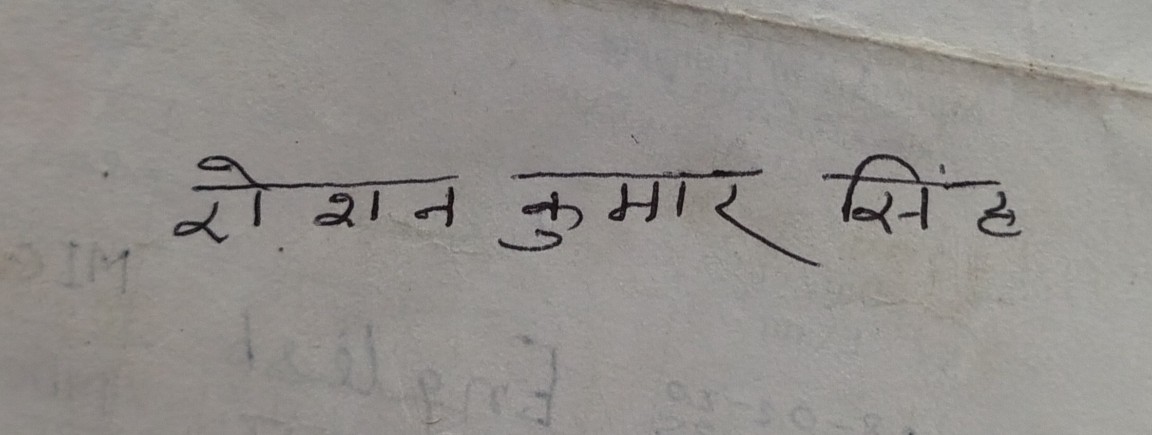 रोशन कुमार सिंह